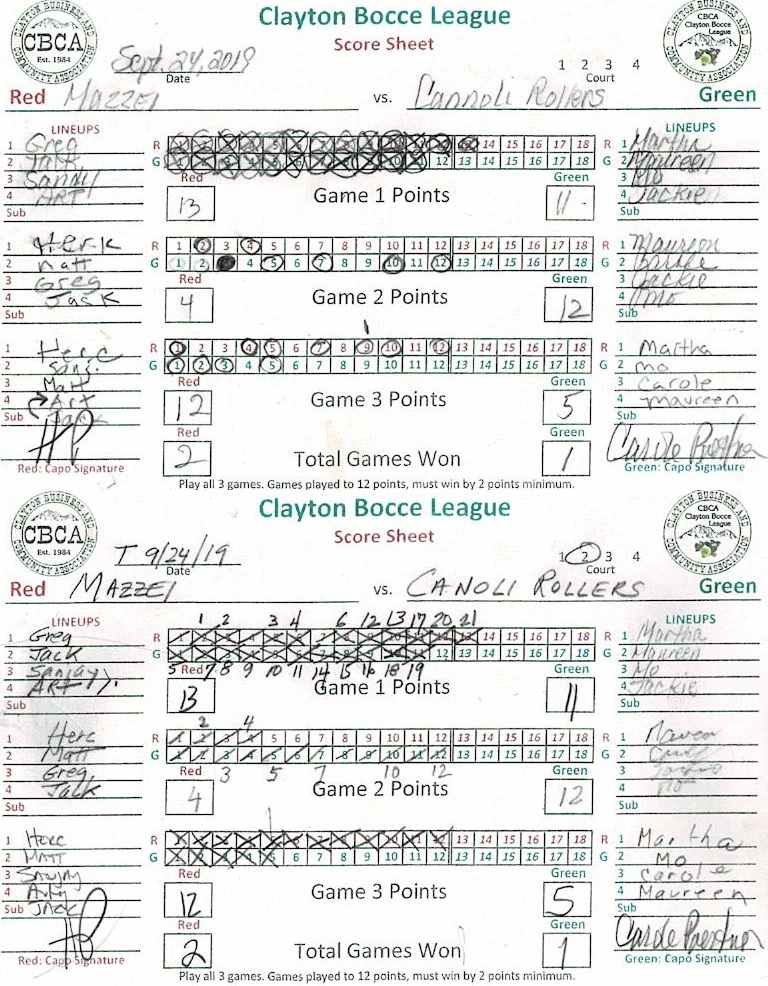 Clayton Bocce League
Score Sheet
CLAYTON BUSINESS AND COMMUNITY ASSOCIATION
CBCA
Est. 1984
CBCA
Clayton Bocce
League
Sept. 24, 2019
Date
1 2 3 4
Court
Red Mazzei vs. Cannoli Rollers Green
LINEUPS
LINEUPS
1 Greg R 1 2 3 4 5 6 7 8 9 10 11 12 13 14 15 16 17 18 R 1 Martha
2 Jack G 1 2 3 4 5 6 7 8 9 10 11 12 13 14 15 16 17 18 G 2 Maureen
3 Sanjay Red Green 3 Mo
4 ART 13 Game 1 Points 11 4 Jackie
Sub Sub
1 Herk R 1 2 3 4 5 6 7 8 9 10 11 12 13 14 15 16 17 18 R 1 Maureen
2 Matt G 1 2 3 4 5 6 7 8 9 10 11 12 13 14 15 16 17 18 G 2
3 Greg Red Green 3 Jackie
4 Jack 4 Game 2 Points 12 4 mo
Sub Sub
1 Herc R 1 2 3 4 5 6 7 8 9 10 11 12 13 14 15 16 17 18 R 1 Martha
2 G 1 2 3 4 5 6 7 8 9 10 11 12 13 14 15 16 17 18 G 2 mo
3 Matt Red Green 3 Carole
4 Art 12 Game 3 Points 5 4 maureen
Sub Jack Red Green Sub
HP 2 Total Games Won 1
Red: Capo Signature Green: Capo Signature
Play all 3 games. Games played to 12 points, must win by 2 points minimum.
Clayton Bocce League
Score Sheet
CLAYTON BUSINESS AND COMMUNITY ASSOCIATION
CBCA
Est. 1984
CBCA
Clayton Bocce
League
T 9/24/19
Date
1 2 3 4
Court
Red MAZZEI vs. CANOLI ROLLERS Green
LINEUPS
LINEUPS
1 2 3 4 6 12 13 17 20 21
1 Greg R 1 2 3 4 5 6 7 8 9 10 11 12 13 14 15 16 17 18 R 1 Martha
2 Jack G 1 2 3 4 5 6 7 8 9 10 11 12 13 14 15 16 17 18 G 2 Maureen
5 Red 7 8 9 10 11 14 15 16 18 19 Green
3 Sanjay 3 Mo
4 ART 13 Game 1 Points 11 4 Jackie
Sub Sub
2 4
1 Herc R 1 2 3 4 5 6 7 8 9 10 11 12 13 14 15 16 17 18 R 1
2 Matt G 1 2 3 4 5 6 7 8 9 10 11 12 13 14 15 16 17 18 G 2
3 Greg Red 3 5 7 10 12 Green 3
4 Jack 4 Game 2 Points 12 4
Sub Sub
1 HERC R 1 2 3 4 5 6 7 8 9 10 11 12 13 14 15 16 17 18 R 1 Martha
2 MATT G 1 2 3 4 5 6 7 8 9 10 11 12 13 14 15 16 17 18 G 2 Mo
3 Red Green 3 Carole
4 12 Game 3 Points 5 4 Maureen
Sub JACK Red Green Sub
HP 2 Total Games Won 1
Red: Capo Signature Green: Capo Signature
Play all 3 games. Games played to 12 points, must win by 2 points minimum.